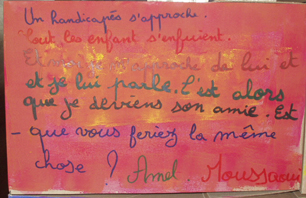 Un handicapés s'approche.
Tout les enfant s'enfuient.
Et moi je m'approche de lui et
et je lui parle. C'est alors
que je deviens son amie. Est
- que vous feriez la même
chose ? Amel Moussaoui